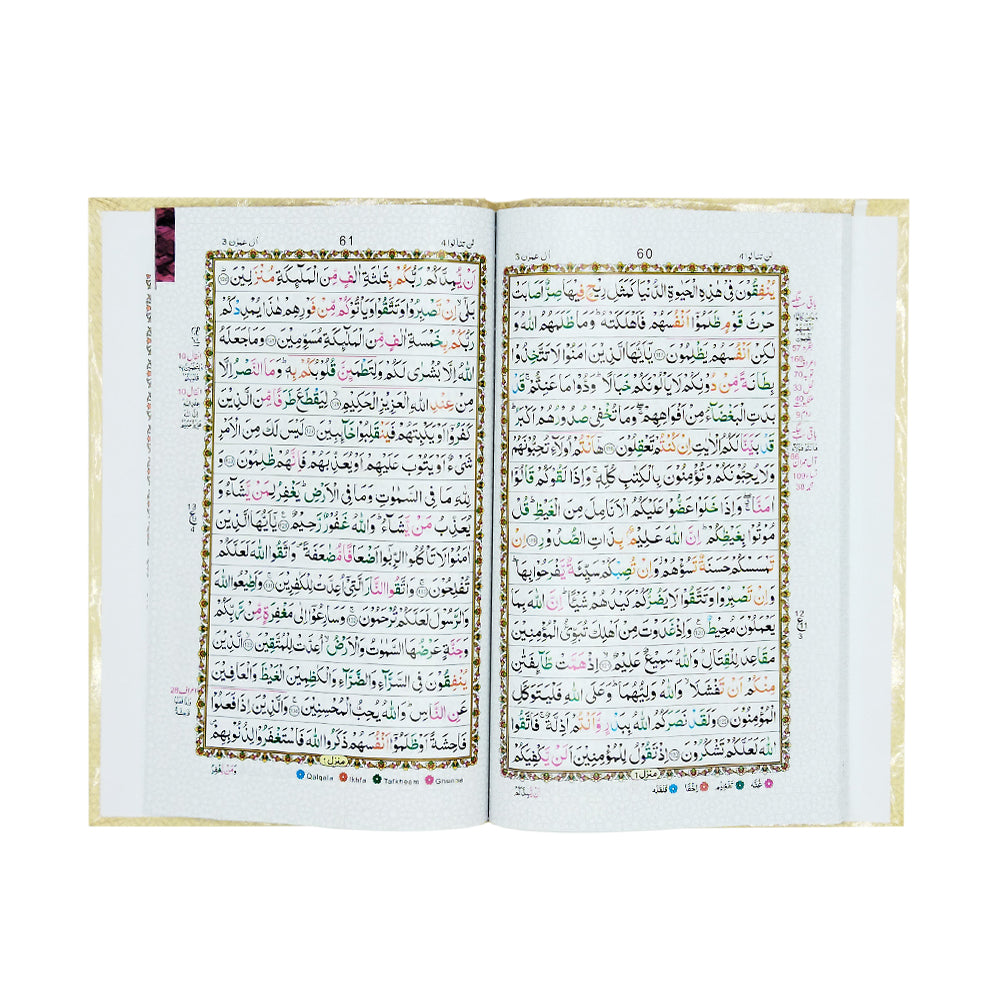 لن تنالوا 4
60
اٰل عمرٰن 3
يُنْفِقُوْنَ فِىْ هٰذِهِ الْحَيٰوةِ الدُّنْيَا كَمَثَلِ رِيْحٍ فِيْهَا صِرٌّ اَصَابَتْ
حَرْثَ قَوْمٍ ظَلَمُوْۤا اَنْفُسَهُمْ فَاَهْلَكَتْهُ ؕ وَمَا ظَلَمَهُمُ اللّٰهُ وَ
لٰكِنْ اَنْفُسَهُمْ يَظْلِمُوْنَ ﴿۱۱۷﴾ يٰۤاَيُّهَا الَّذِيْنَ اٰمَنُوْا لَا تَتَّخِذُوْا
بِطَانَةً مِّنْ دُوْنِكُمْ لَا يَاْلُوْنَكُمْ خَبَالًا ؕ وَدُّوْا مَا عَنِتُّمْ ۚ قَدْ
بَدَتِ الْبَغْضَآءُ مِنْ اَفْوَاهِهِمْ ۖۚ وَمَا تُخْفِىْ صُدُوْرُهُمْ اَكْبَرُ ؕ
قَدْ بَيَّنَّا لَكُمُ الْاٰيٰتِ اِنْ كُنْتُمْ تَعْقِلُوْنَ ﴿۱۱۸﴾ هٰۤاَنْتُمْ اُولَآءِ تُحِبُّوْنَهُمْ
وَلَا يُحِبُّوْنَكُمْ وَتُؤْمِنُوْنَ بِالْكِتٰبِ كُلِّهٖ ۚ وَاِذَا لَقُوْكُمْ قَالُوْۤا
اٰمَنَّا ۖۚ وَاِذَا خَلَوْا عَضُّوْا عَلَيْكُمُ الْاَنَامِلَ مِنَ الْغَيْظِ ؕ قُلْ
مُوْتُوْا بِغَيْظِكُمْ ؕ اِنَّ اللّٰهَ عَلِيْمٌۢ بِذَاتِ الصُّدُوْرِ ﴿۱۱۹﴾ اِنْ
تَمْسَسْكُمْ حَسَنَةٌ تَسُؤْهُمْ ؗ وَاِنْ تُصِبْكُمْ سَيِّئَةٌ يَّفْرَحُوْا بِهَا ؕ
وَاِنْ تَصْبِرُوْا وَتَتَّقُوْا لَا يَضُرُّكُمْ كَيْدُهُمْ شَيْـًٔا ؕ اِنَّ اللّٰهَ بِمَا
يَعْمَلُوْنَ مُحِيْطٌ ﴿۱۲۰﴾ وَاِذْ غَدَوْتَ مِنْ اَهْلِكَ تُبَوِّئُ الْمُؤْمِنِيْنَ
مَقَاعِدَ لِلْقِتَالِ ؕ وَاللّٰهُ سَمِيْعٌ عَلِيْمٌ ﴿۱۲۱﴾ اِذْ هَمَّتْ طَّآئِفَتٰنِ
مِنْكُمْ اَنْ تَفْشَلَا ۙ وَاللّٰهُ وَلِيُّهُمَا ؕ وَعَلَى اللّٰهِ فَلْيَتَوَكَّلِ
الْمُؤْمِنُوْنَ ﴿۱۲۲﴾ وَلَقَدْ نَصَرَكُمُ اللّٰهُ بِبَدْرٍ وَّاَنْتُمْ اَذِلَّةٌ ۚ فَاتَّقُوا
اللّٰهَ لَعَلَّكُمْ تَشْكُرُوْنَ ﴿۱۲۳﴾ اِذْ تَقُوْلُ لِلْمُؤْمِنِيْنَ اَلَنْ يَّكْفِيَكُمْ
منزل ۱
غنّه تفخيم اخفا قلقله
اَنْ يُّمِدَّكُمْ
لن تنالوا 4
61
اٰل عمرٰن 3
اَنْ يُّمِدَّكُمْ رَبُّكُمْ بِثَلٰثَةِ اٰلٰفٍ مِّنَ الْمَلٰٓئِكَةِ مُنْزَلِيْنَ ﴿۱۲۴﴾
بَلٰٓى ۙ اِنْ تَصْبِرُوْا وَتَتَّقُوْا وَيَاْتُوْكُمْ مِّنْ فَوْرِهِمْ هٰذَا يُمْدِدْكُمْ
رَبُّكُمْ بِخَمْسَةِ اٰلٰفٍ مِّنَ الْمَلٰٓئِكَةِ مُسَوِّمِيْنَ ﴿۱۲۵﴾ وَمَا جَعَلَهُ
اللّٰهُ اِلَّا بُشْرٰى لَكُمْ وَلِتَطْمَئِنَّ قُلُوْبُكُمْ بِهٖ ؕ وَمَا النَّصْرُ اِلَّا
مِنْ عِنْدِ اللّٰهِ الْعَزِيْزِ الْحَكِيْمِ ﴿۱۲۶﴾ لِيَقْطَعَ طَرَفًا مِّنَ الَّذِيْنَ
كَفَرُوْۤا اَوْ يَكْبِتَهُمْ فَيَنْقَلِبُوْا خَآئِبِيْنَ ﴿۱۲۷﴾ لَيْسَ لَكَ مِنَ الْاَمْرِ
شَىْءٌ اَوْ يَتُوْبَ عَلَيْهِمْ اَوْ يُعَذِّبَهُمْ فَاِنَّهُمْ ظٰلِمُوْنَ ﴿۱۲۸﴾
وَلِلّٰهِ مَا فِى السَّمٰوٰتِ وَمَا فِى الْاَرْضِ ؕ يَغْفِرُ لِمَنْ يَّشَآءُ وَ
يُعَذِّبُ مَنْ يَّشَآءُ ؕ وَاللّٰهُ غَفُوْرٌ رَّحِيْمٌ ﴿۱۲۹﴾ يٰۤاَيُّهَا الَّذِيْنَ
اٰمَنُوْا لَا تَاْكُلُوا الرِّبٰۤوا اَضْعَافًا مُّضٰعَفَةً ۪ وَّاتَّقُوا اللّٰهَ لَعَلَّكُمْ
تُفْلِحُوْنَ ﴿۱۳۰﴾ وَاتَّقُوا النَّارَ الَّتِىْۤ اُعِدَّتْ لِلْكٰفِرِيْنَ ﴿۱۳۱﴾ وَاَطِيْعُوا اللّٰهَ
وَالرَّسُوْلَ لَعَلَّكُمْ تُرْحَمُوْنَ ﴿۱۳۲﴾ وَسَارِعُوْۤا اِلٰى مَغْفِرَةٍ مِّنْ رَّبِّكُمْ
وَجَنَّةٍ عَرْضُهَا السَّمٰوٰتُ وَالْاَرْضُ ۙ اُعِدَّتْ لِلْمُتَّقِيْنَ ﴿۱۳۳﴾ الَّذِيْنَ
يُنْفِقُوْنَ فِى السَّرَّآءِ وَالضَّرَّآءِ وَالْكٰظِمِيْنَ الْغَيْظَ وَالْعَافِيْنَ
عَنِ النَّاسِ ؕ وَاللّٰهُ يُحِبُّ الْمُحْسِنِيْنَ ﴿۱۳۴﴾ وَالَّذِيْنَ اِذَا فَعَلُوْا
فَاحِشَةً اَوْ ظَلَمُوْۤا اَنْفُسَهُمْ ذَكَرُوا اللّٰهَ فَاسْتَغْفَرُوْا لِذُنُوْبِهِمْ ۪
منزل ۱
Qalqala Ikhfa Tafkheem Ghunna